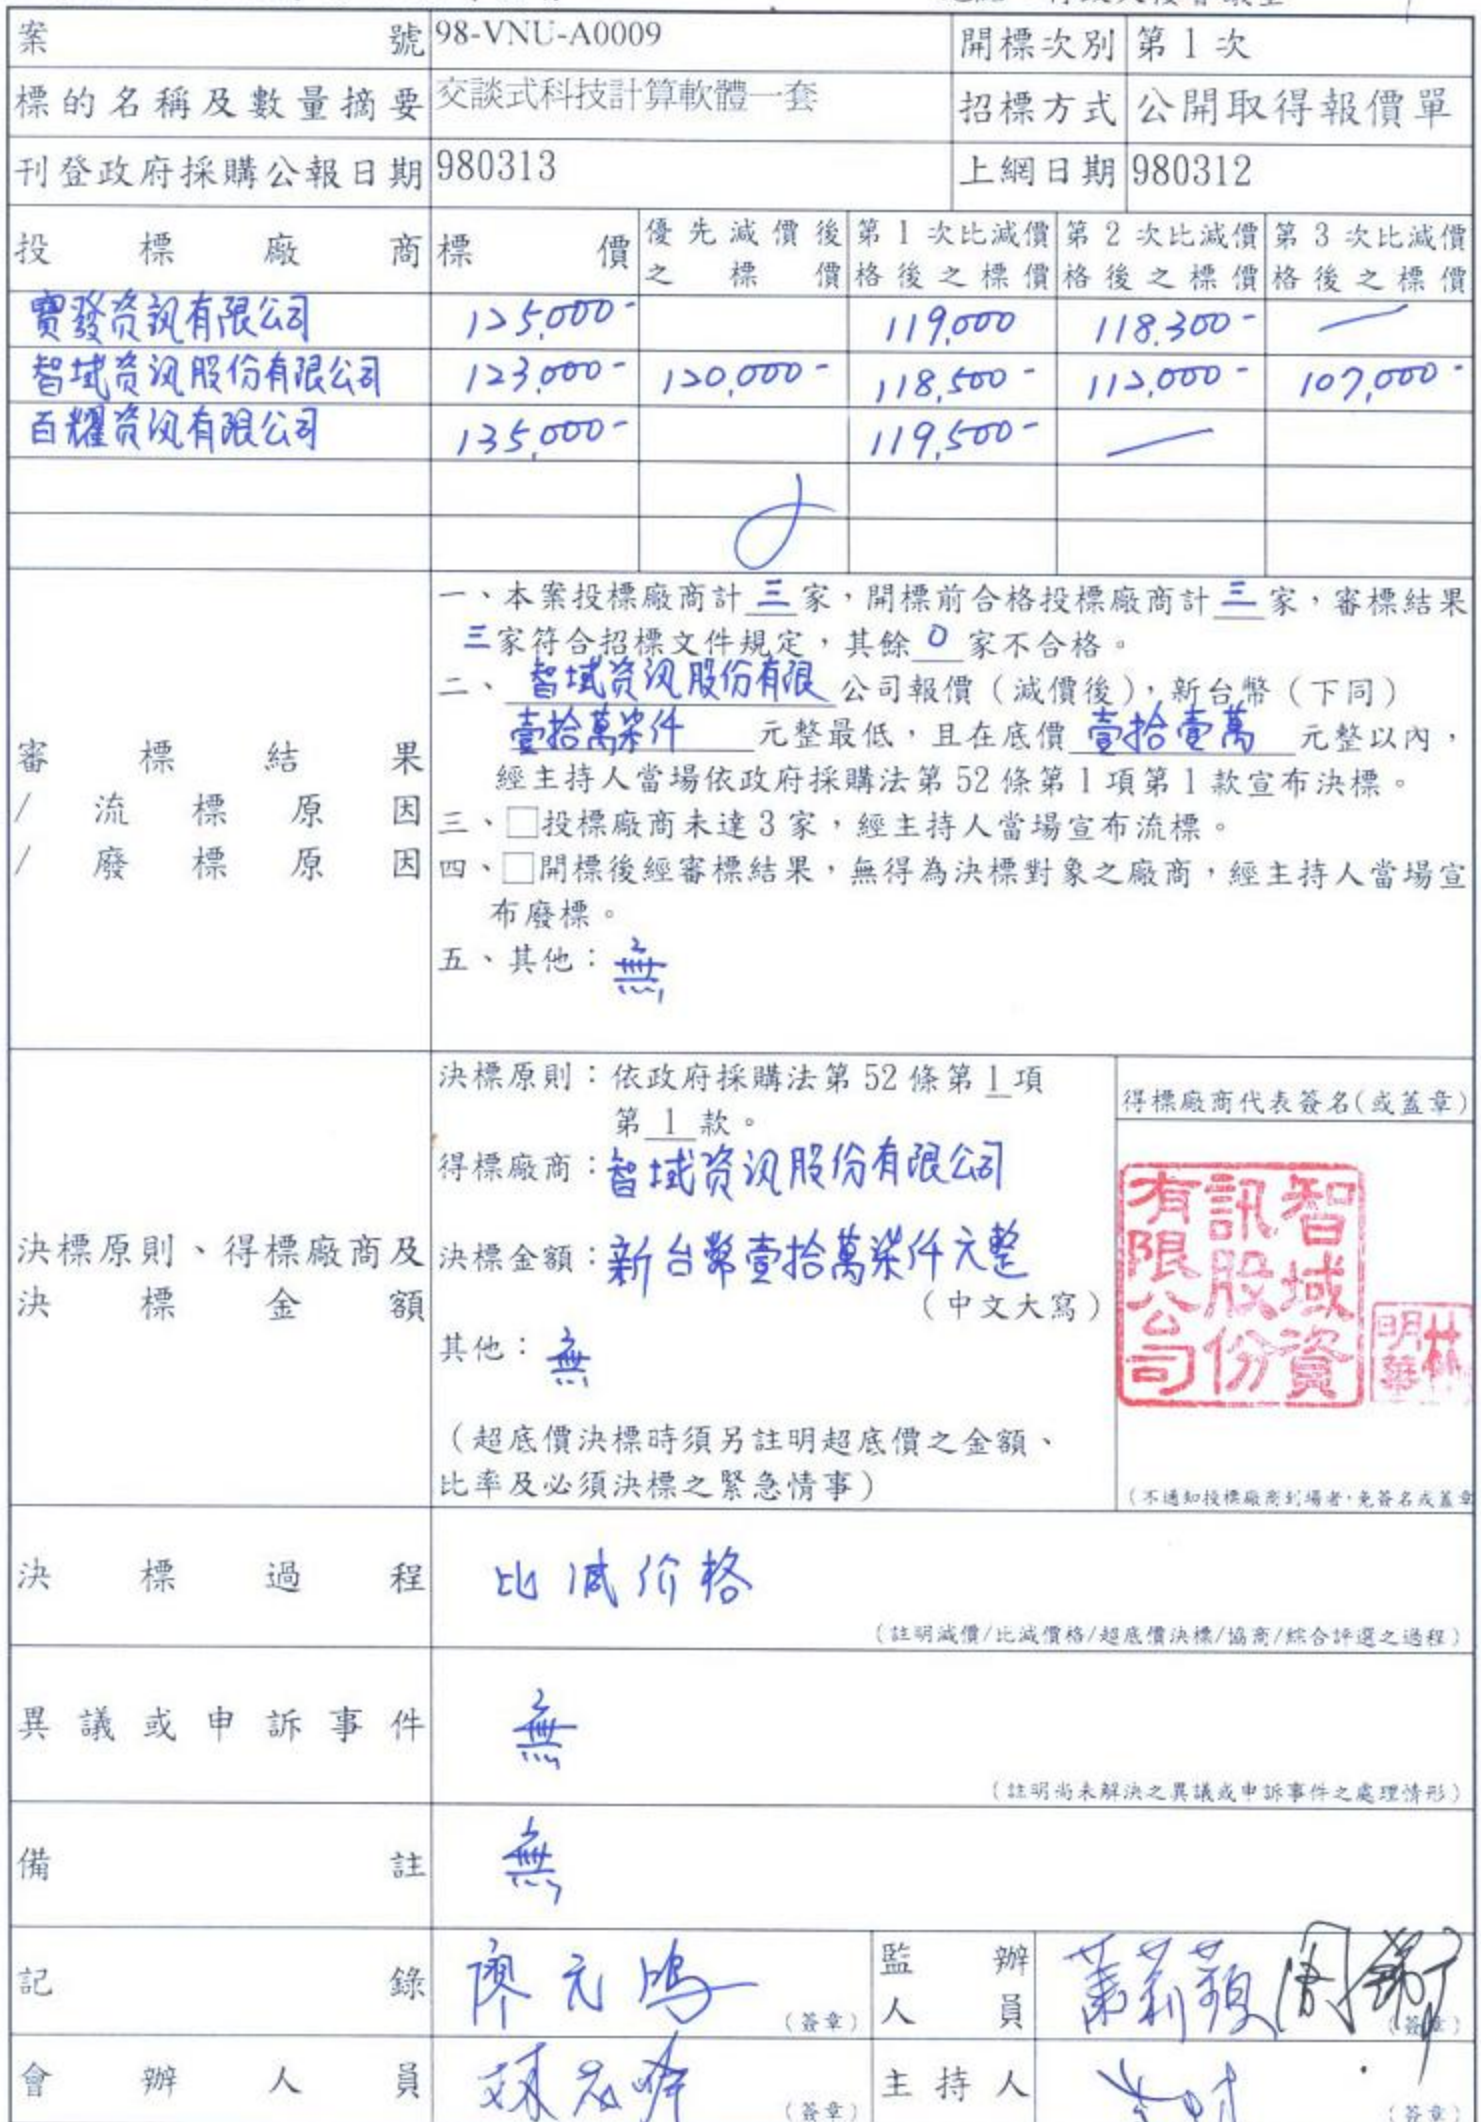 案號 98-VNU-A0009 開標次別 第 1 次
標的名稱及數量摘要 交談式科技計算軟體一套 招標方式 公開取得報價單
刊登政府採購公報日期 980313 上網日期 980312
投標廠商 標價 優先減價後之標價 第 1 次比減價格後之標價 第 2 次比減價格後之標價 第 3 次比減價格後之標價
寶發资訊有限公司 125,000- 119,000 118,300- —
智域资汛股份有限公司 123,000- 120,000- 118,500- 112,000- 107,000-
百耀资汛有限公司 135,000- 119,500- —
審標結果
/流標原因
/廢標原因
一、本案投標廠商計三家，開標前合格投標廠商計三家，審標結果
三家符合招標文件規定，其餘 0 家不合格。
二、智域资汛股份有限公司報價（減價後），新台幣（下同）
壹拾萬柒仟元整最低，且在底價壹拾壹萬元整以內，
經主持人當場依政府採購法第 52 條第 1 項第 1 款宣布決標。
三、□投標廠商未達 3 家，經主持人當場宣布流標。
四、□開標後經審標結果，無得為決標對象之廠商，經主持人當場宣
布廢標。
五、其他：無
決標原則、得標廠商及
決標金額
決標原則：依政府採購法第 52 條第 1 項
第 1 款。
得標廠商：智域资汛股份有限公司
決標金額：新台幣壹拾萬柒仟元整
（中文大寫）
其他：無
（超底價決標時須另註明超底價之金額、
比率及必須決標之緊急情事）
得標廠商代表簽名(或蓋章)
智域資
訊股份
有限公司
林
明華
（不通知投標廠商到場者，免簽名或蓋章
決標過程 比減价格
（註明減價/比減價格/超底價決標/協商/綜合評選之過程）
異議或申訴事件 無
（註明尚未解決之異議或申訴事件之處理情形）
備註 無
記錄 廖元鴻 （簽章） 監辦人員 蕭莉蘋 （簽章）
會辦人員 （簽章） 主持人 （簽章）